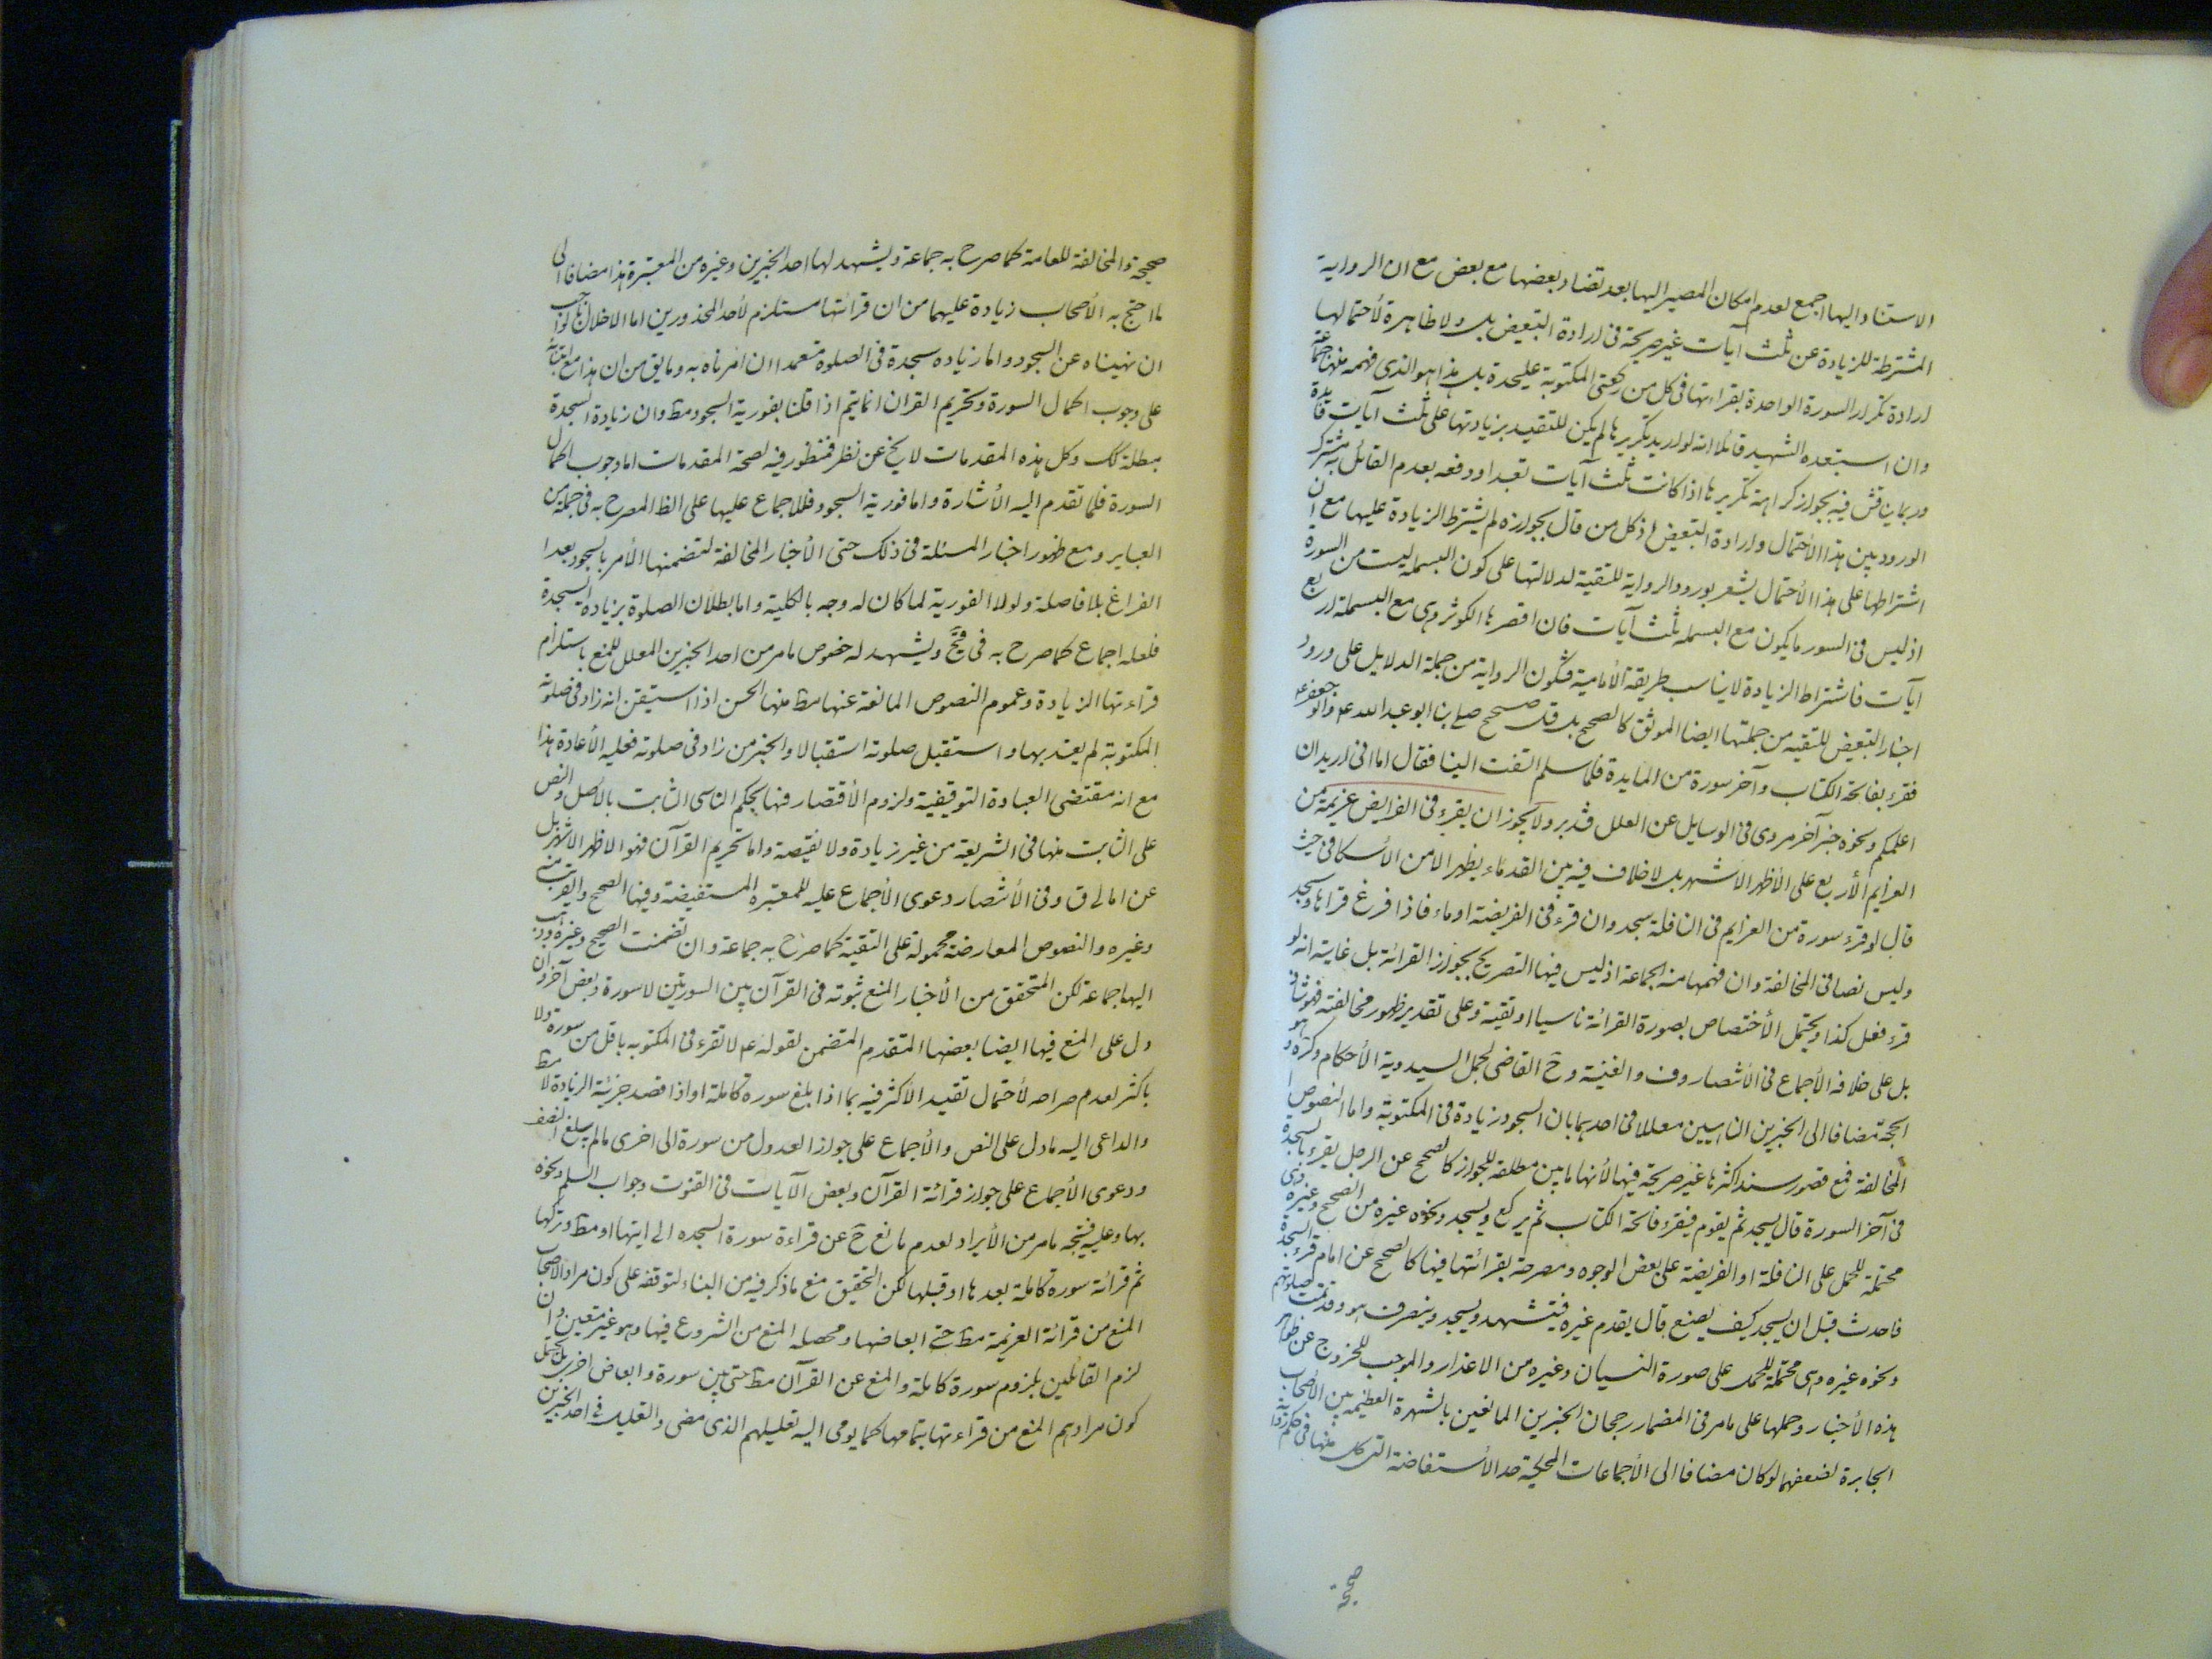 الاستناد اليها اجمع لعدم امكان المصير اليها بعد تضاد بعضها مع بعض مع ان الرواية
المشترطة للزيادة عن ثلث آيات غير صريحة فى ارادة التبعيض بل ولا ظاهرة لأحتمالها
ارادة تكرار السورة الواحدة بقراءتها فى كل من ركعتى المكتوبة عليحدة بل هذا هو الذى فهمه منها جماعة
وان استبعده الشهيد قائلا انه لو اريد تكريرها لم يكن للتقييد بزيادتها على ثلث آيات فايدة
وربما يناقش فيه بجواز كراهة تكريرها اذا كانت ثلث آيات تعبدا ودفعه بعدم القائل به مشترك
الورود بين هذا الأحتمال وارادة التبعيض اذ كل من قال بجوازه لم يشترط الزيادة عليها مع ان
اشتراطها على هذا الأحتمال يشعر بورود الرواية للتقية لدلالتها على كون البسملة ليست من السورة
اذ ليس فى السور ما يكون مع البسملة ثلث آيات فان اقصرها الكوثر وهى مع البسملة اربع
آيات فاشتراط الزيادة لا يناسب طريقة الأمامية فتكون الرواية من جملة الدلايل على ورود
اخبار التبعيض للتقية من جملتها ايضا الموثق كالصحيح بل قيل صحيح صلى بنا ابو عبد الله ع او ابو جعفر ع
فقرء بفاتحة الكتاب وآخر سورة من المايدة فلما سلم التفت الينا فقال اما انى اريد ان
اعلمكم ونحوه خبر آخر مروى فى الوسايل عن العلل فتدبر ولا يجوز ان يقرء فى الفرايض عزيمة من
العزايم الأربع على الأظهر الأشهر بل لا خلاف فيه بين القدماء يظهر الا من الأسكافى حيث
قال لو قرء سورة من العزايم فى النافلة سجد وان قرء فى الفريضة اوماء فاذا فرغ قراها وسجد
وليس نصا فى المخالفة وان فهمها منه الجماعة اذ ليس فيها التصريح بجواز القرائة بل غايته انه لو
قرء فعل كذا ويحتمل الأختصاص بصورة القرائة ناسيا او تقية وعلى تقدير ظهور مخالفته فهو شاذ
بل على خلافه الأجماع فى الأنتصار وف والغنية وح القاضى لجمل السيد وية الأحكام وكره وهو
الحجة مضافا الى الخبرين الناهيين معللا فى احدهما بان السجود زيادة فى المكتوبة واما النصوص
المخالفة فمع قصور سند اكثرها غير صريحة فيها لأنها ما بين مطلقة للجواز كالصحيح عن الرجل يقرء بالسجدة
فى آخر السورة قال يسجد ثم يقوم فيقرء فاتحة الكتاب ثم يركع ويسجد ونحوه غيره من الصحيح وغيره
محتملة للحمل على النافلة او الفريضة على بعض الوجوه ومصرحة بقرائتها فيها كالصحيح عن امام قرء السجدة
فاحدث قبل ان يسجد كيف يصنع قال يقدم غيره فيتشهد ويسجد وينصرف هو وقد تمت صلوتهم
ونحوه غيره وهى محتملة للحمل على صورة النسيان وغيره من الاعذار والموجب للخروج عن ظواهر
هذه الأخبار وحملها على ما مر فى المضمار رجحان الخبرين المانعين بالشهرة العظيمة بين الأصحاب
الجابرة لضعفهما لو كان مضافا الى الأجماعات المحكية حد الأستفاضة التى كل منها فى حكم رواية
صحيحة
صحيحة والمخالفة للعامة كما صرح به جماعة ويشهد لها احد الخبرين وغيره من المعتبرة هذا مضافا الى
ما احتج به الأصحاب زيادة عليهما من ان قرائتها مستلزم لأحد المحذورين اما الاخلال بالواجب
ان نهيناه عن السجود واما زيادة سجدة فى الصلوة متعمدا ان امرناه به وما يق من ان هذا مع ابتنائه
على وجوب اكمال السورة وتحريم القران انما يتم اذا قلنا بفورية السجود مط وان زيادة السجدة
مبطلة كك وكل هذه المقدمات لا يخ عن نظر فمنظور فيه لصحة المقدمات اما وجوب اكمال
السورة فلما تقدم اليه الأشارة واما فورية السجود فللاجماع عليها على الظ المصرح به فى جملة من
العباير ومع ظهور اخبار المسئلة فى ذلك حتى الأخبار المخالفة لتضمنها الأمر بالسجود بعد ا
الفراغ بلا فاصلة ولولا الفورية لما كان له وجه بالكلية واما بطلان الصلوة بزيادة السجدة
فلعله اجماع كما صرح به فى قيح ويشهد له خصوص ما مر من احد الخبرين المعلل للمنع باستلزام
قراءتها الزيادة وعموم النصوص المانعة عنها مط منها الحسن اذا استيقن انه زاد فى صلوته
المكتوبة لم يعتد بها واستقبل صلوته استقبالا والخبر من زاد فى صلوته فعليه الأعادة هذا
مع انه مقتضى العبادة التوقيفية ولزوم الأقتصار فيها بحكم التاسى الثابت بالاصل والنص
على الثابت منها فى الشريعة من غير زيادة ولا نقيصة واما تحريم القرآن فهو الاظهر الاشهر بل
عن امالى ق وفى الأنتصار دعوى الأجماع عليه للمعتبرة المستفيضة وفيها الصحيح والقريب منه
وغيره والنصوص المعارضة محمولة على التقية كما صرح به جماعة وان تضمنت الصحيح وغيره وذهب
اليها جماعة لكن المتحقق من الأخبار المنع ثبوته فى القرآن بين السورتين لا سورة وبعض آخر وان
دل على المنع فيها ايضا بعضها المتقدم المتضمن لقوله ع لا تقرء فى المكتوبه باقل من سورة ولا
باكثر لعدم صراحه لأحتمال تقييد الاكثر فيه بما اذا بلغ سورة كاملة او اذا قصد جزئية الزيادة لا مط
والداعى اليه ما دل على النص والأجماع على جواز العدول من سورة الى اخرى ما لم يبلغ النصف
ودعوى الأجماع على جواز قرائة القرآن وبعض الآيات فى القنوت وجواب السلم ونحوه
بها وعليه فيتجه ما مر من الأيراد لعدم مانع ح عن قراءة سورة السجده الى ايتها او مط وتركها
ثم قرائة سورة كاملة بعدها او قبلها لكن التحقيق منع ما ذكر فيه من البناء لتوقفه على كون مراد الأصحاب
المنع من قرائة العزيمة مط حتى ابعاضها ومحصله المنع من الشروع فيها وهو غير متعين وان
لزم القائلين بلزوم سورة كاملة والمنع عن القرآن مط حتى بين سورة وابعاض اخرى بل يحتمل
كون مرادهم المنع من قراءتها بتمامها كما يومى اليه تعليلهم الذى مضى والتعليل فى احد الخبرين